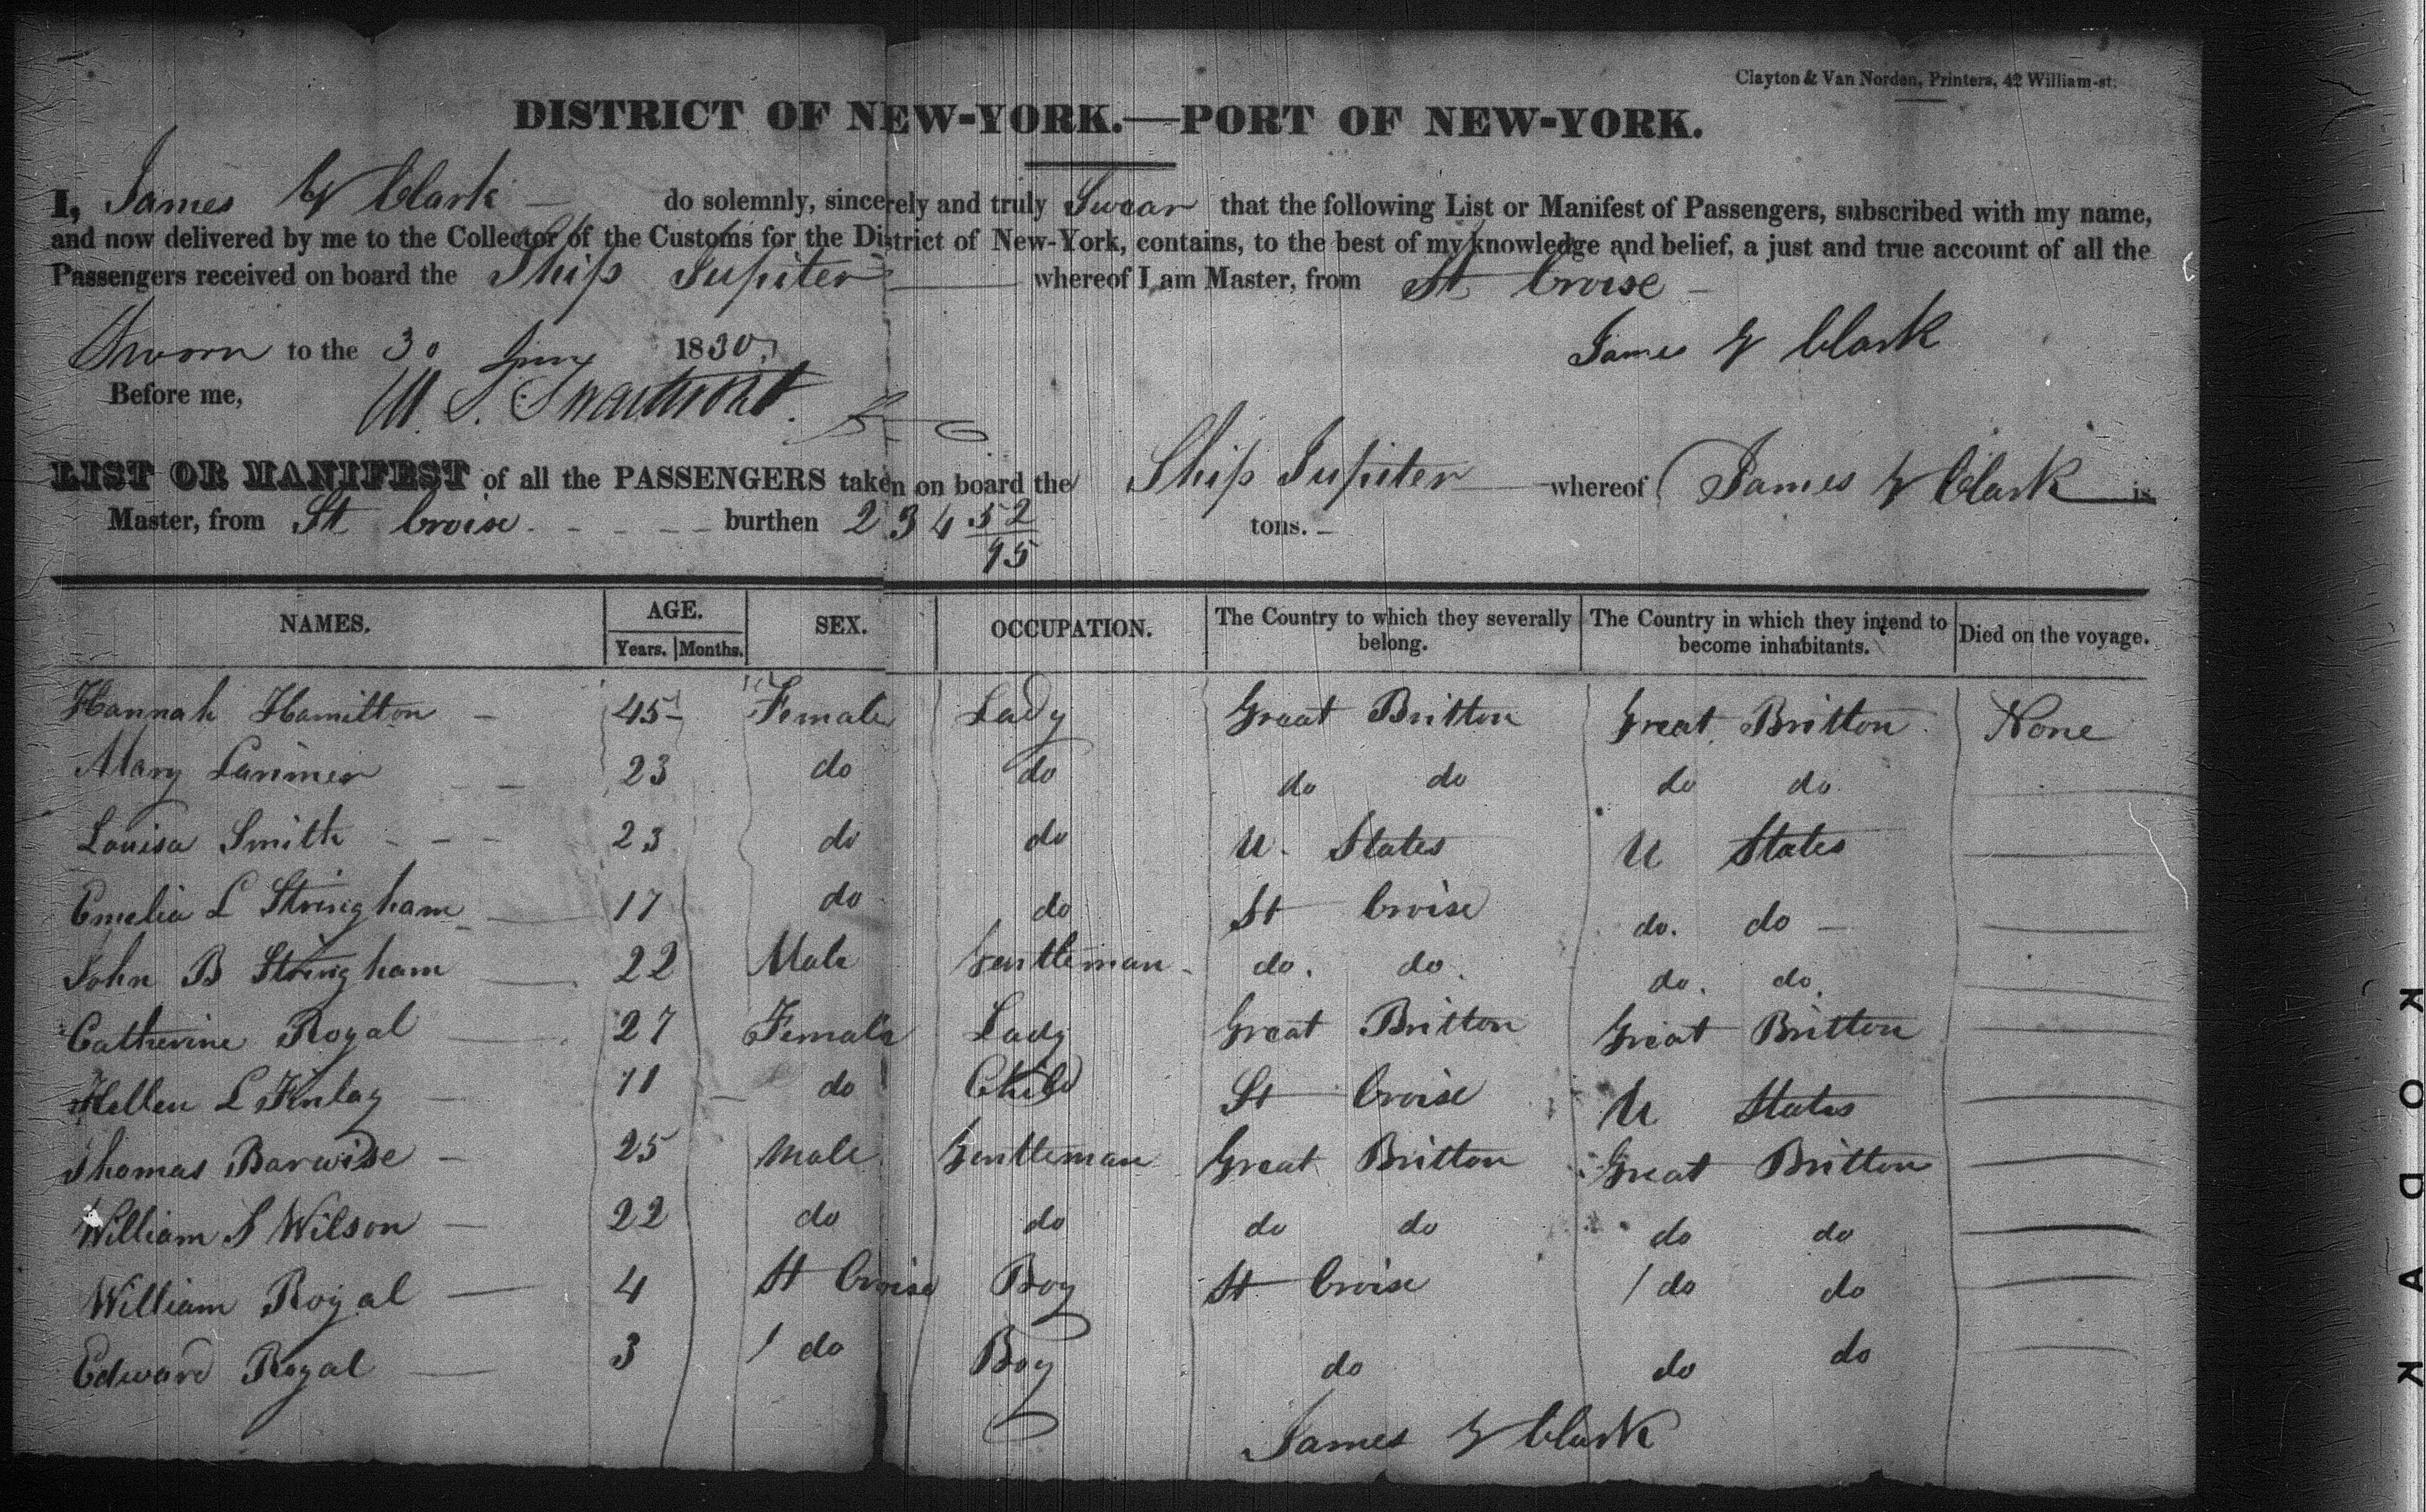 Clayton & Van Norden, Printers, 42 William-st.
DISTRICT OF NEW-YORK.—PORT OF NEW-YORK.
I, James Y Clark - do solemnly, sincerely and truly Swear that the following List or Manifest of Passengers, subscribed with my name,
and now delivered by me to the Collector of the Customs for the District of New-York, contains, to the best of my knowledge and belief, a just and true account of all the
Passengers received on board the Ship Jupiter whereof I am Master, from St Croise -
Sworn to the 30 1830, James Y Clark
Before me,
LIST OR MANIFEST of all the PASSENGERS taken on board the Ship Jupiter whereof James Y Clark is
Master, from St Croise - - - - burthen 234 52/95 tons. -
NAMES. AGE. SEX. OCCUPATION. The Country to which they severally belong. The Country in which they intend to become inhabitants. Died on the voyage.
Years. Months.
Hannah Hamilton - 45 Female Lady Great Britton Great Britton None
Mary Larimer - - 23 do do do do do do
Louisa Smith - - - 23 do do U. States U States
Emelia L Stringham 17 do do St Croise do. do -
John B Stringham 22 Male Gentleman do. do. do. do.
Catherine Royal 27 Female Lady Great Britton Great Britton
Hellen L Finlay - 11 do Child St Croise U States
Thomas Barwise - 25 Male Gentleman Great Britton Great Britton
William S Wilson - 22 do do do do do do
William Royal - 4 St Croise Boy St Croise do do
Edward Royal - 3 do Boy do do do
James Y Clark
KODAK